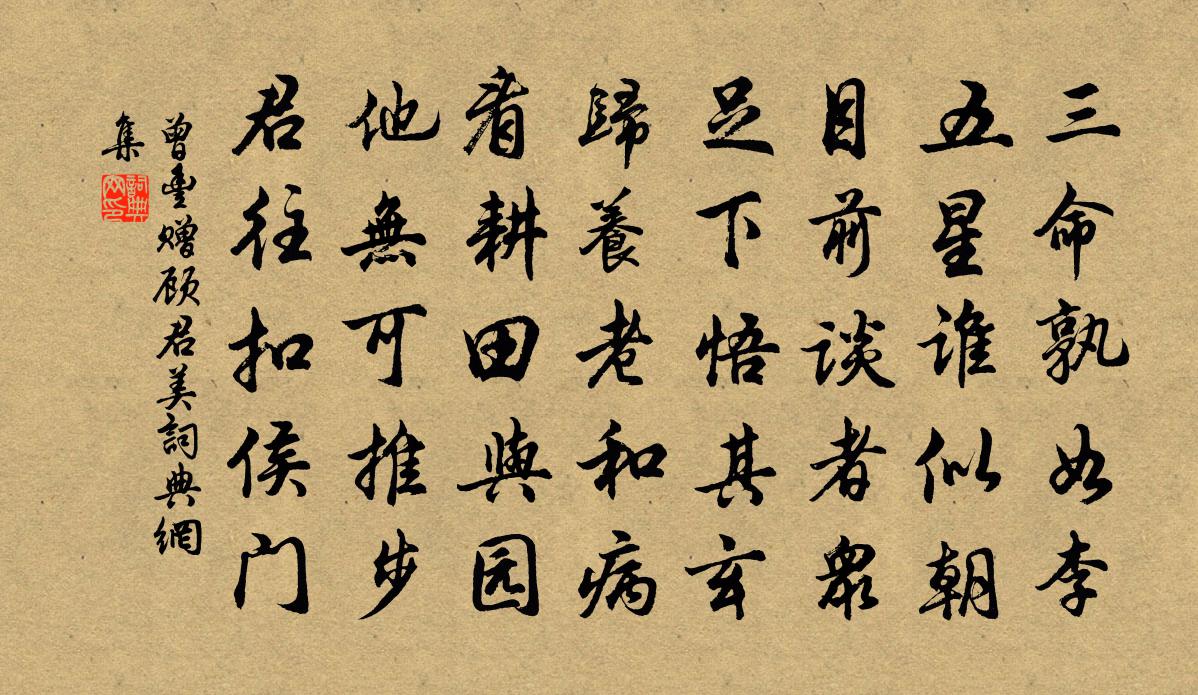 三命孰如李
五星谁似朝
目前談者衆
足下悟其玄
歸養老和病
看耕田與园
他無可推步
君往扣侯门
曾豐赠顾君美詞典網
集
詞典
网印